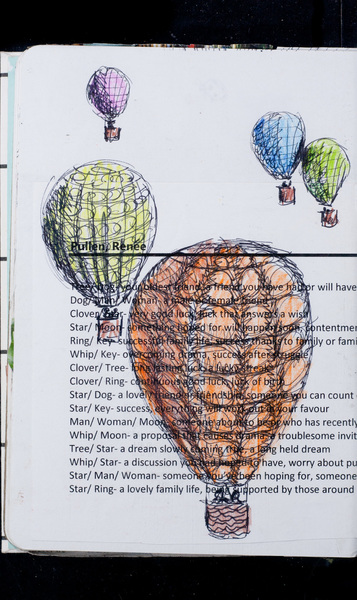 Pullen, Renee
Tree/ Dog- your oldest friend, a friend you have had or will have
Dog/ Man/ Woman- a male or female friend
Clover/ Star- very good luck, luck that answers a wish
Star/ Moon- something hoped for will happen soon, contentmen
Ring/ Key- successful family life, success thanks to family or fami
Whip/ Key- overcoming drama, success after struggle
Clover/ Tree- long lasting luck, a lucky streak
Clover/ Ring- continuous good luck, luck of
Star/ Dog- a lovely friend or friendship, someone you can count
Star/ Key- success, everything will work out in your favour
Man/ Woman/ Moon- someone about to who has recently
Whip/ Moon- a proposal that causes drama, a troublesome invit
Tree/ Star- a dream slowly coming true, a long held dream
Whip/ Star- a discussion you had hoped to have, worry about pu
Star/ Man/ Woman- someone you've been hoping for, someone
Star/ Ring- a lovely family life, being supported by those around